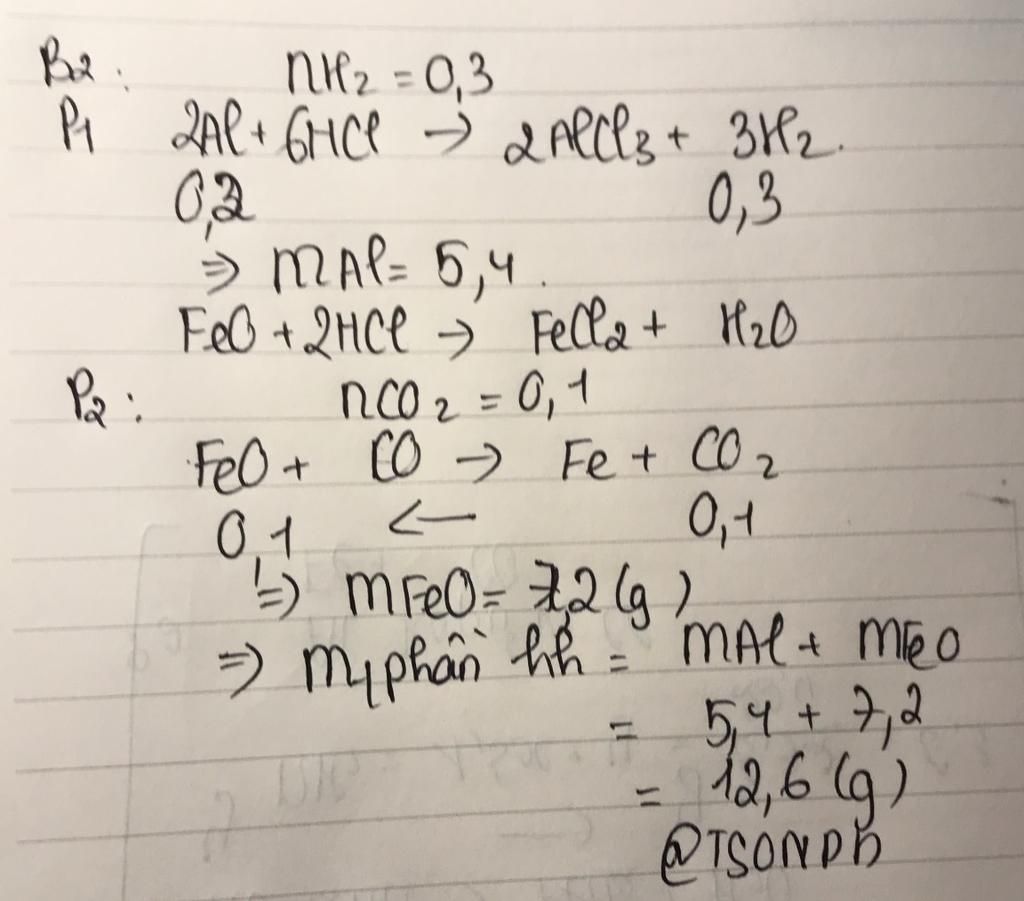 B2: nH2 = 0,3
P1 2Al + 6HCl → 2AlCl3 + 3H2.
0,2 0,3
⇒ mAl = 5,4.
FeO + 2HCl → FeCl2 + H2O
P2: nCO2 = 0,1
FeO + CO → Fe + CO2
0,1 ← 0,1
⇒ mFeO = 7,2 (g)
⇒ m1phần hh = mAl + mFeO
= 5,4 + 7,2
= 12,6 (g)
@TSONDH